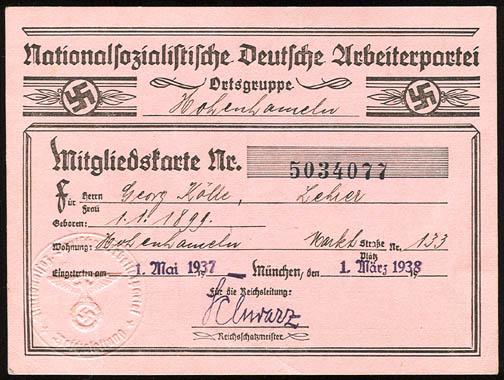 Nationalsozialistische Deutsche Arbeiterpartei
Ortsgruppe
Hohenhameln
Mitgliedskarte Nr. 5034077
Für Herrn Frau Georg Kölle, Lehrer
Geboren: 1.1.1899.
Wohnung: Hohenhameln Markt Straße Platz Nr. 133
Eingetreten am 1. Mai 1937 München, den 1. März 1938
Für die Reichsleitung:
Schwarz
Reichsschatzmeister